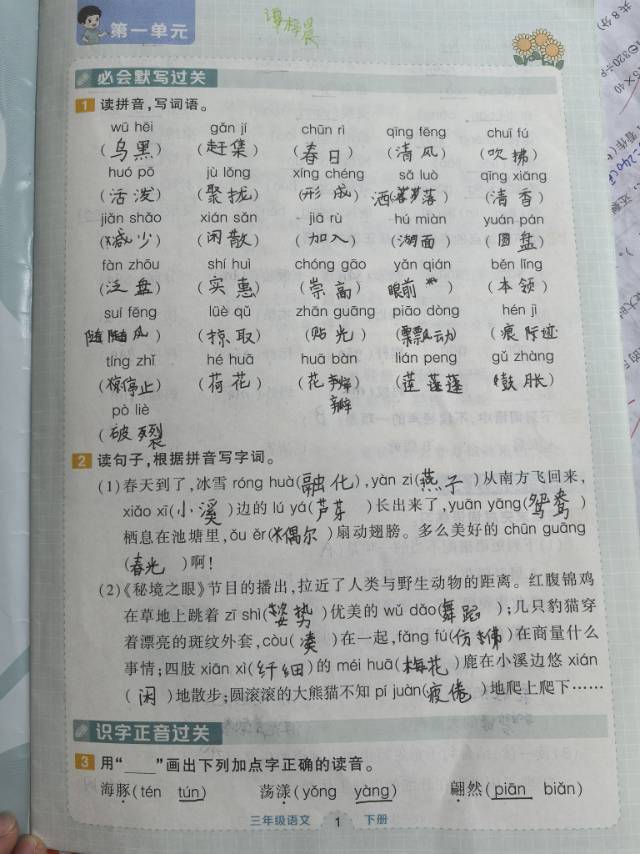 第一单元
谭梓晨
必会默写过关
1 读拼音,写词语。
wū hēi gǎn jí chūn rì qīng fēng chuī fú
(乌黑) (赶集) (春日) (清风) (吹拂)
huó pō jù lǒng xíng chéng sǎ luò qīng xiāng
(活泼) (聚拢) (形成) 洒(落) (清香)
jiǎn shǎo xián sǎn jiā rù hú miàn yuán pán
(减少) (闲散) (加入) (湖面) (圆盘)
fàn zhōu shí huì chóng gāo yǎn qián běn lǐng
(泛盘) (实惠) (崇高) 眼前( ) (本领)
suí fēng lüè qǔ zhān guāng piāo dòng hén jì
随随风) (掠取) (贴光) (飘动) (痕迹
tíng zhǐ hé huā huā bàn lián peng gǔ zhàng
(停止) (荷花) (花瓣) (莲蓬蓬 (鼓胀)
瓣
pò liè
(破裂
2 读句子,根据拼音写字词。
(1)春天到了,冰雪 róng huà(融化),yàn zi(燕子)从南方飞回来,
xiǎo xī(小溪)边的 lú yá(芦芽)长出来了,yuān yāng(鸳鸯)
栖息在池塘里,ǒu ěr(偶尔)扇动翅膀。多么美好的 chūn guāng
(春光)啊!
(2)《秘境之眼》节目的播出,拉近了人类与野生动物的距离。红腹锦鸡
在草地上跳着 zī shì(姿势)优美的 wǔ dǎo(舞蹈);几只豹猫穿
着漂亮的斑纹外套,còu(凑)在一起,fǎng fú(仿佛)在商量什么
事情;四肢 xiān xì(纤细)的 méi huā(梅花)鹿在小溪边悠 xián
(闲)地散步;圆滚滚的大熊猫不知 pí juàn(疲倦)地爬上爬下……
识字正音过关
3 用“____”画出下列加点字正确的读音。
海豚(tén tún) 荡漾(yǒng yàng) 翩然(piān biǎn)
三年级语文 1 下册